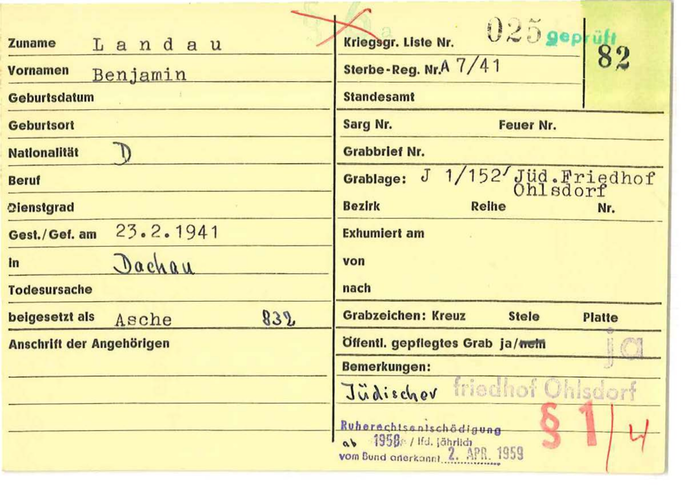 Zuname Landau
Vornamen Benjamin
Geburtsdatum
Geburtsort
Nationalität D
Beruf
Dienstgrad
Gest./Gef. am 23.2.1941
in Dachau
Todesursache
beigesetzt als Asche 832
Anschrift der Angehörigen
Kriegsgr. Liste Nr. 025 geprüft
82
Sterbe-Reg. Nr. A 7/41
Standesamt
Sarg Nr. Feuer Nr.
Grabbrief Nr.
Grablage: J 1/152 Jüd.Friedhof
Ohlsdorf
Bezirk Reihe Nr.
Exhumiert am
von
nach
Grabzeichen: Kreuz Stele Platte
Öffentl. gepflegtes Grab ja/nein ja
Bemerkungen:
Jüdischer friedhof Ohlsdorf
Ruherechtsentschädigung
ab 1958 / lfd. jährlich
vom Bund anerkannt 2. APR. 1959
§ 1/4